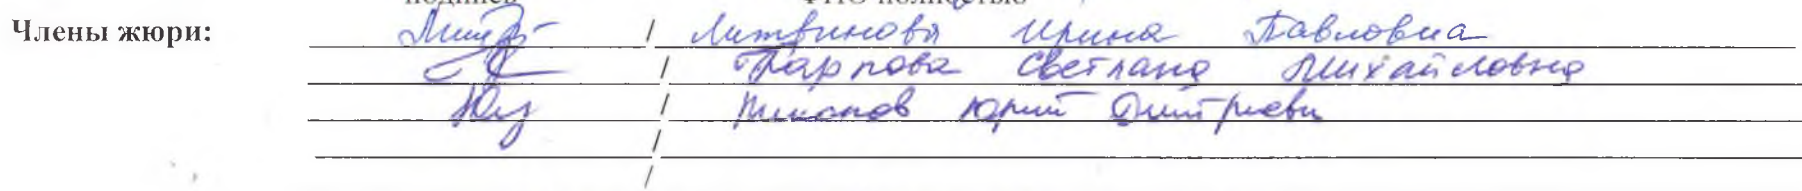 подпись ФИО полностью
Члены жюри: / Литвинова Ирина Павловна
/ Карпова Светлана Михайловна
/ Юрий Дмитриеви
/
/